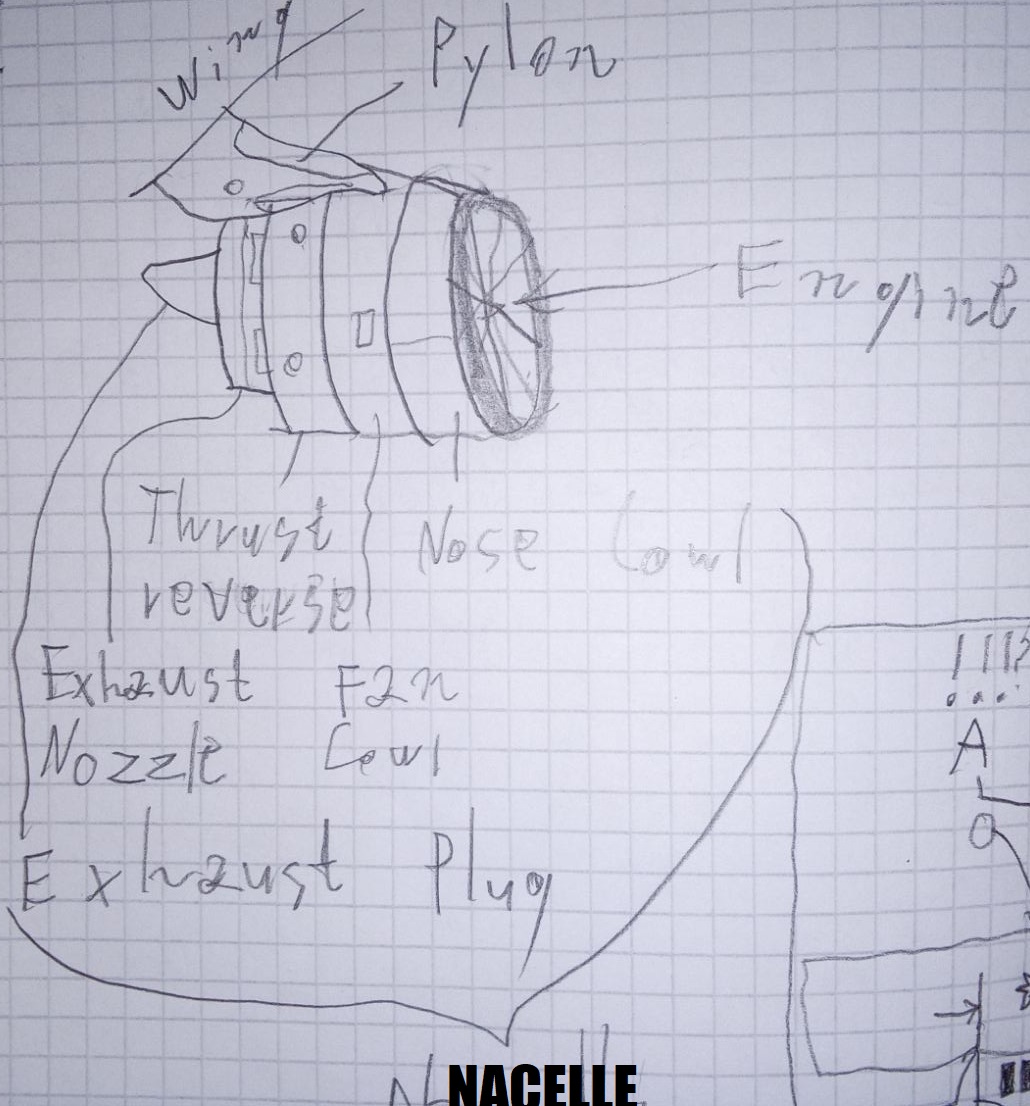 Wing
Pylon
Engine
Thrust
reverse
Nose Cowl
Exhaust
Nozzle
Fan
Cowl
Exhaust Plug
NACELLE
!!!?
A